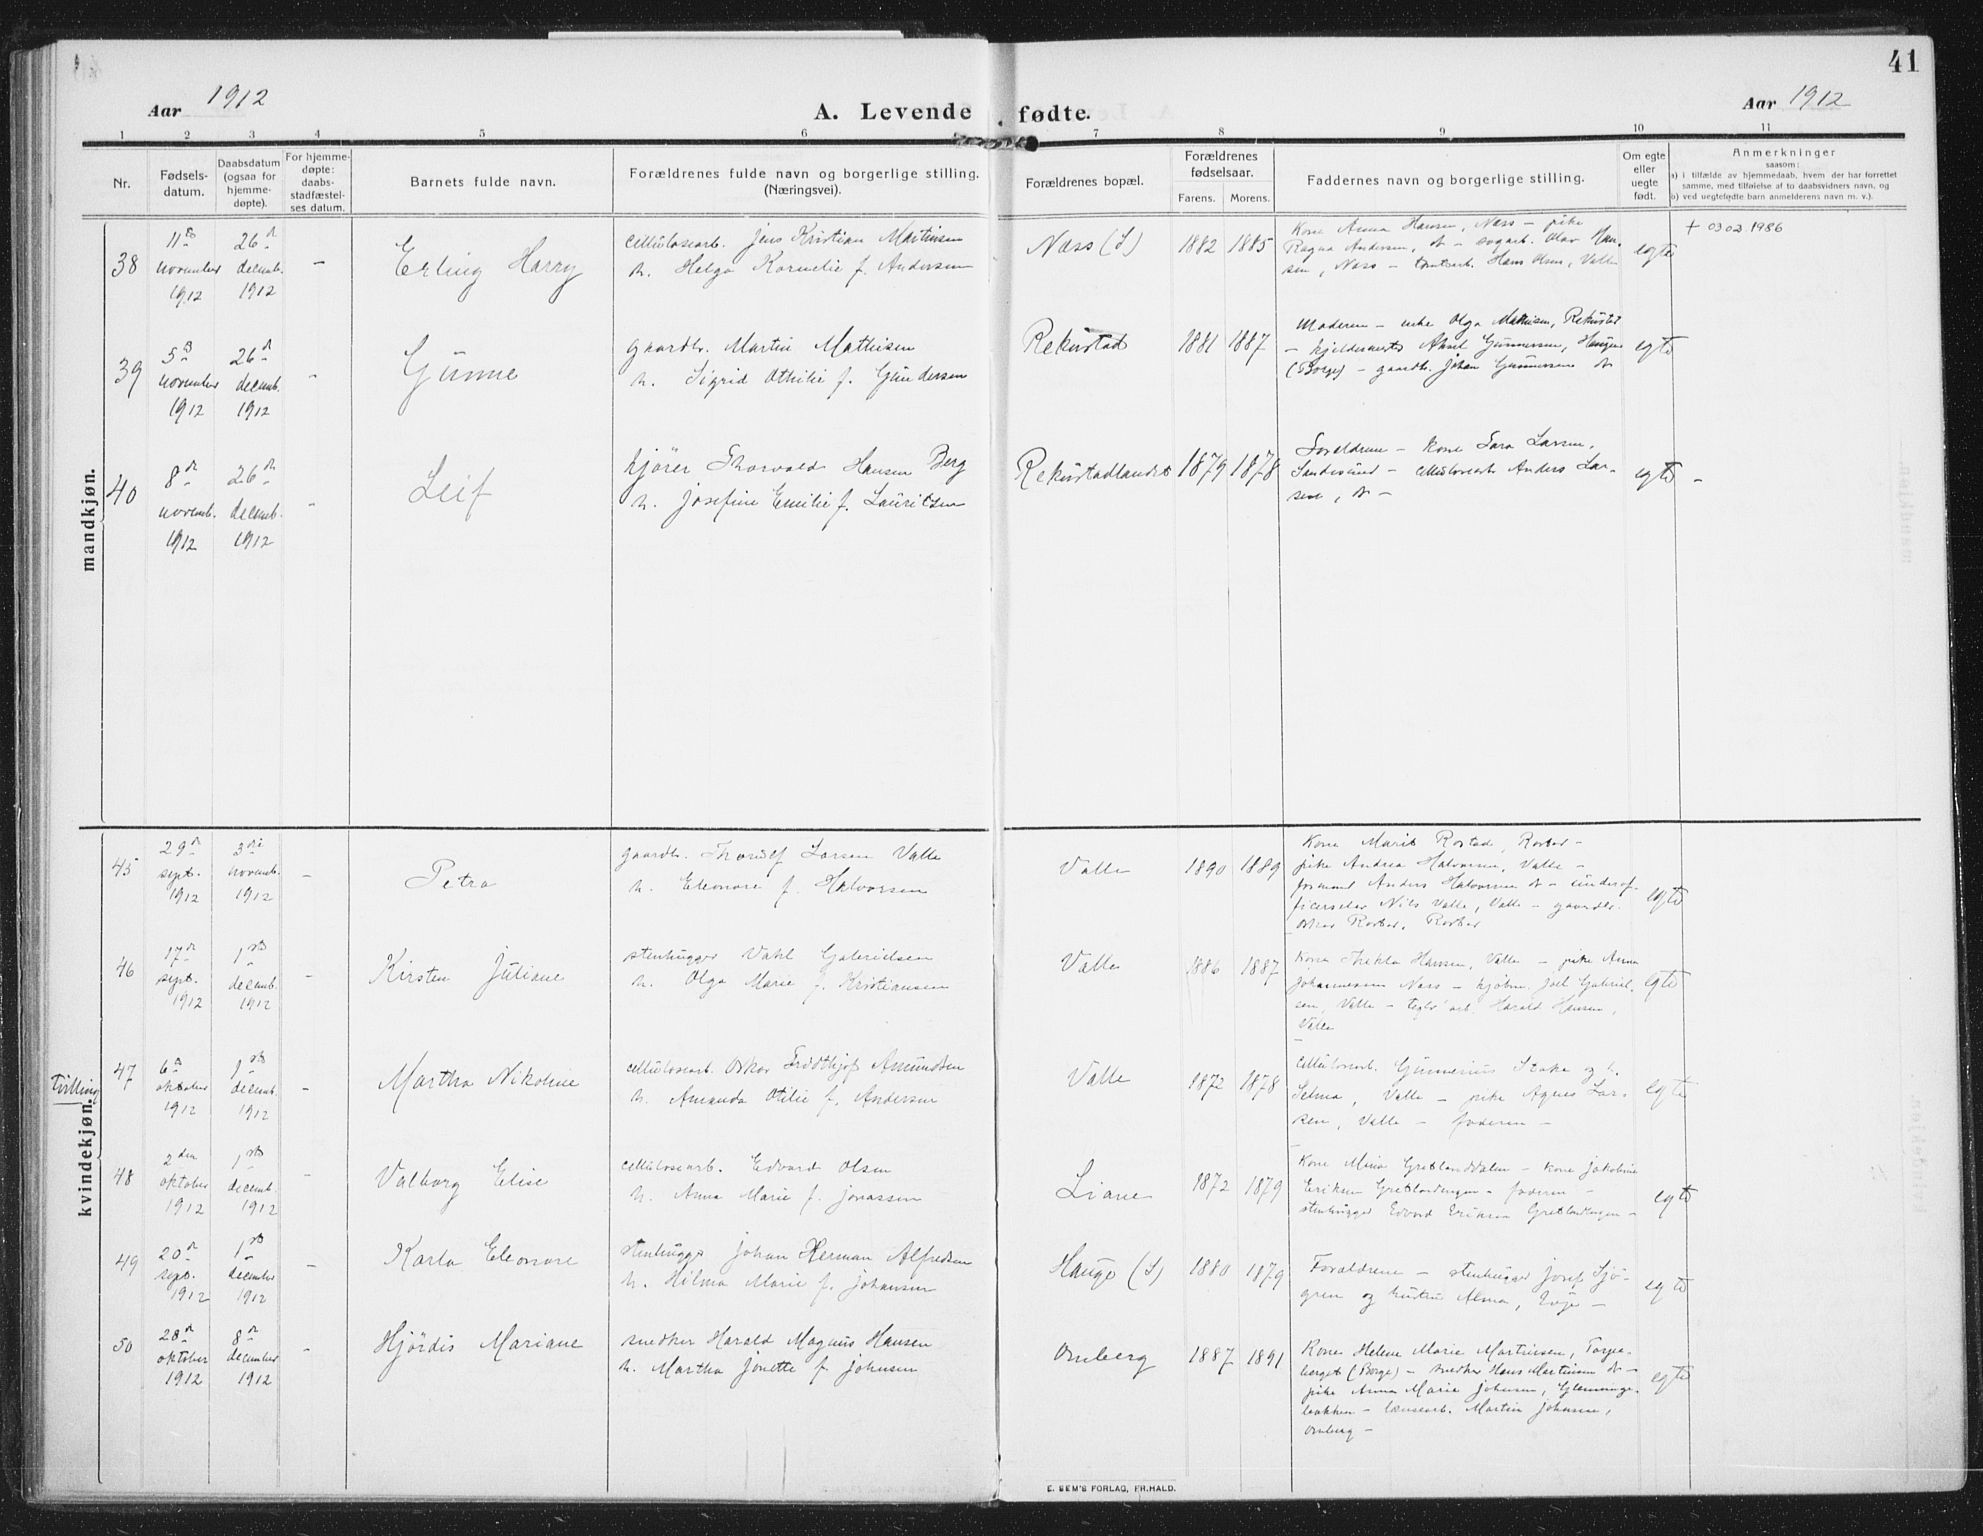 41
Aar 1912
A. Levende fødte.
Aar 1912
1 2 3 4 5 6 7 8 9 10 11
Nr.
Fødsels-
datum.
Daabsdatum
(ogsaa for
hjemme-
døpte).
For hjemme-
døpte:
daabs-
stadfæstel-
ses datum.
Barnets fulde navn.
Forældrenes fulde navn og borgerlige stilling.
(Næringsvei).
Forældrenes bopæl.
Forældrenes
fødselsaar.
Farens. Morens.
Faddernes navn og borgerlige stilling.
Om egte
eller
uegte
født.
Anmerkninger
saasom:
a) i tilfælde av hjemmedaab, hvem der har forrettet
samme, med tilføielse af to daabsvidners navn, og
b) ved uegtefødte barn anmelderens navn m. v.).
mandkjøn.
38
11
november
1912
26
decemb.
1912
-
Erling Harry
cellulosearb. Jens Kristian Martinsen
h. Helga Kornelie f. Andersen
Næss (S)
1882 1885
Kone Anna Hansen, Næss - pike
Ragna Andersen, - Olav Han-
sen, Næss - Hans Olsen, Valle
egte
+ 03 02 1986
39
5
november
1912
26
decemb.
1912
-
Gunne
gaardbr. Martin Mathisen
h. Sigrid Othilie f. Gundersen
Rekustad
1881 1887
Moderen - enke Olga Mathisen, Rekustad
- Aksel Gunnersen, Haugen
(Borge) - gaardb. Johan Gunnersen
egte
40
8
novemb.
1912
26
decemb.
1912
-
Leif
kjører Thorvald Hansen Berg
h. Josefine Emilie f. Lauritsen
Rekustadlandet
1879 1878
Foreldrene - kone Sara Larsen,
- cellulosearb Anders Lar-
sen, -
egte -
kvindekjøn.
45
29
sept.
1912
3die
novemb.
1912
-
Petra
gaardb. Thorolf Larsen Valle
h. Eleonore f. Halvorsen
Valle
1890 1889
Kone Marit Rostad, -
pike Andrea Halvorsen, Valle -
formand Anders Halvorsen - underof-
ficerselev Nils Valle, Valle - gaardbr.
Oskar
egte
46
17
sept.
1912
1
decemb.
1912
-
Kirsten Juliane
stenhugger Vahl Gabrielsen
h. Olga Marie f. Kristiansen
Valle
1886 1887
Kone Thekla Hansen, Valle - pike Anna
Johannessen Næss - kjøbm. Joel Gabriel-
sen, Valle - teglv arb. Harald Hansen,
Valle
egte
tvilling
47
6
oktober
1912
1
decemb.
1912
-
Martha Nikoline
cellulosearb. Oskar Fridthjof Amundsen
h. Amanda Otilie f. Andersen
Valle
1872 1878
cellulosearb. Gunnerius Stake og h.
Selma, Valle - pike Agnes Lar-
sen, Valle - faderen -
egte
48
2den
oktober
1912
1
decemb.
1912
-
Valborg Elise
cellulosearb. Edvard Olsen
h. Anna Marie f. Jonassen
Liane
1872 1879
Kone Mina Gretlanddalen - kone Jakobine
Eriksen Gretlandengen - faderen -
stenhugger Edvard Eriksen Gretlandengen -
egte
49
20
sept.
1912
1
december
1912
-
Karla Eleonore
stenhugger Johan Herman Alfredsen
h. Hilma Marie f. Johansen
Hauge (S)
1880 1879
Forældrene - stenhugger Josef Sjö-
gren og hustru Alma, -
egte
50
28
oktober
1912
8
december
1912
-
Hjördis Mariane
snedker Harald Magnus Hansen
h. Martha Jonette f. Johnsen
Omberg
1887 1891
Kone Helene Marie Martinsen, Torpe-
berget (Borge) - snedker Hans Martinsen -
pike Anna Marie Johnsen, Glemminge-
bakken - lænsearb. Martin Johnsen,
Omberg -
egte
E. SEM'S FORLAG, FR.HALD.